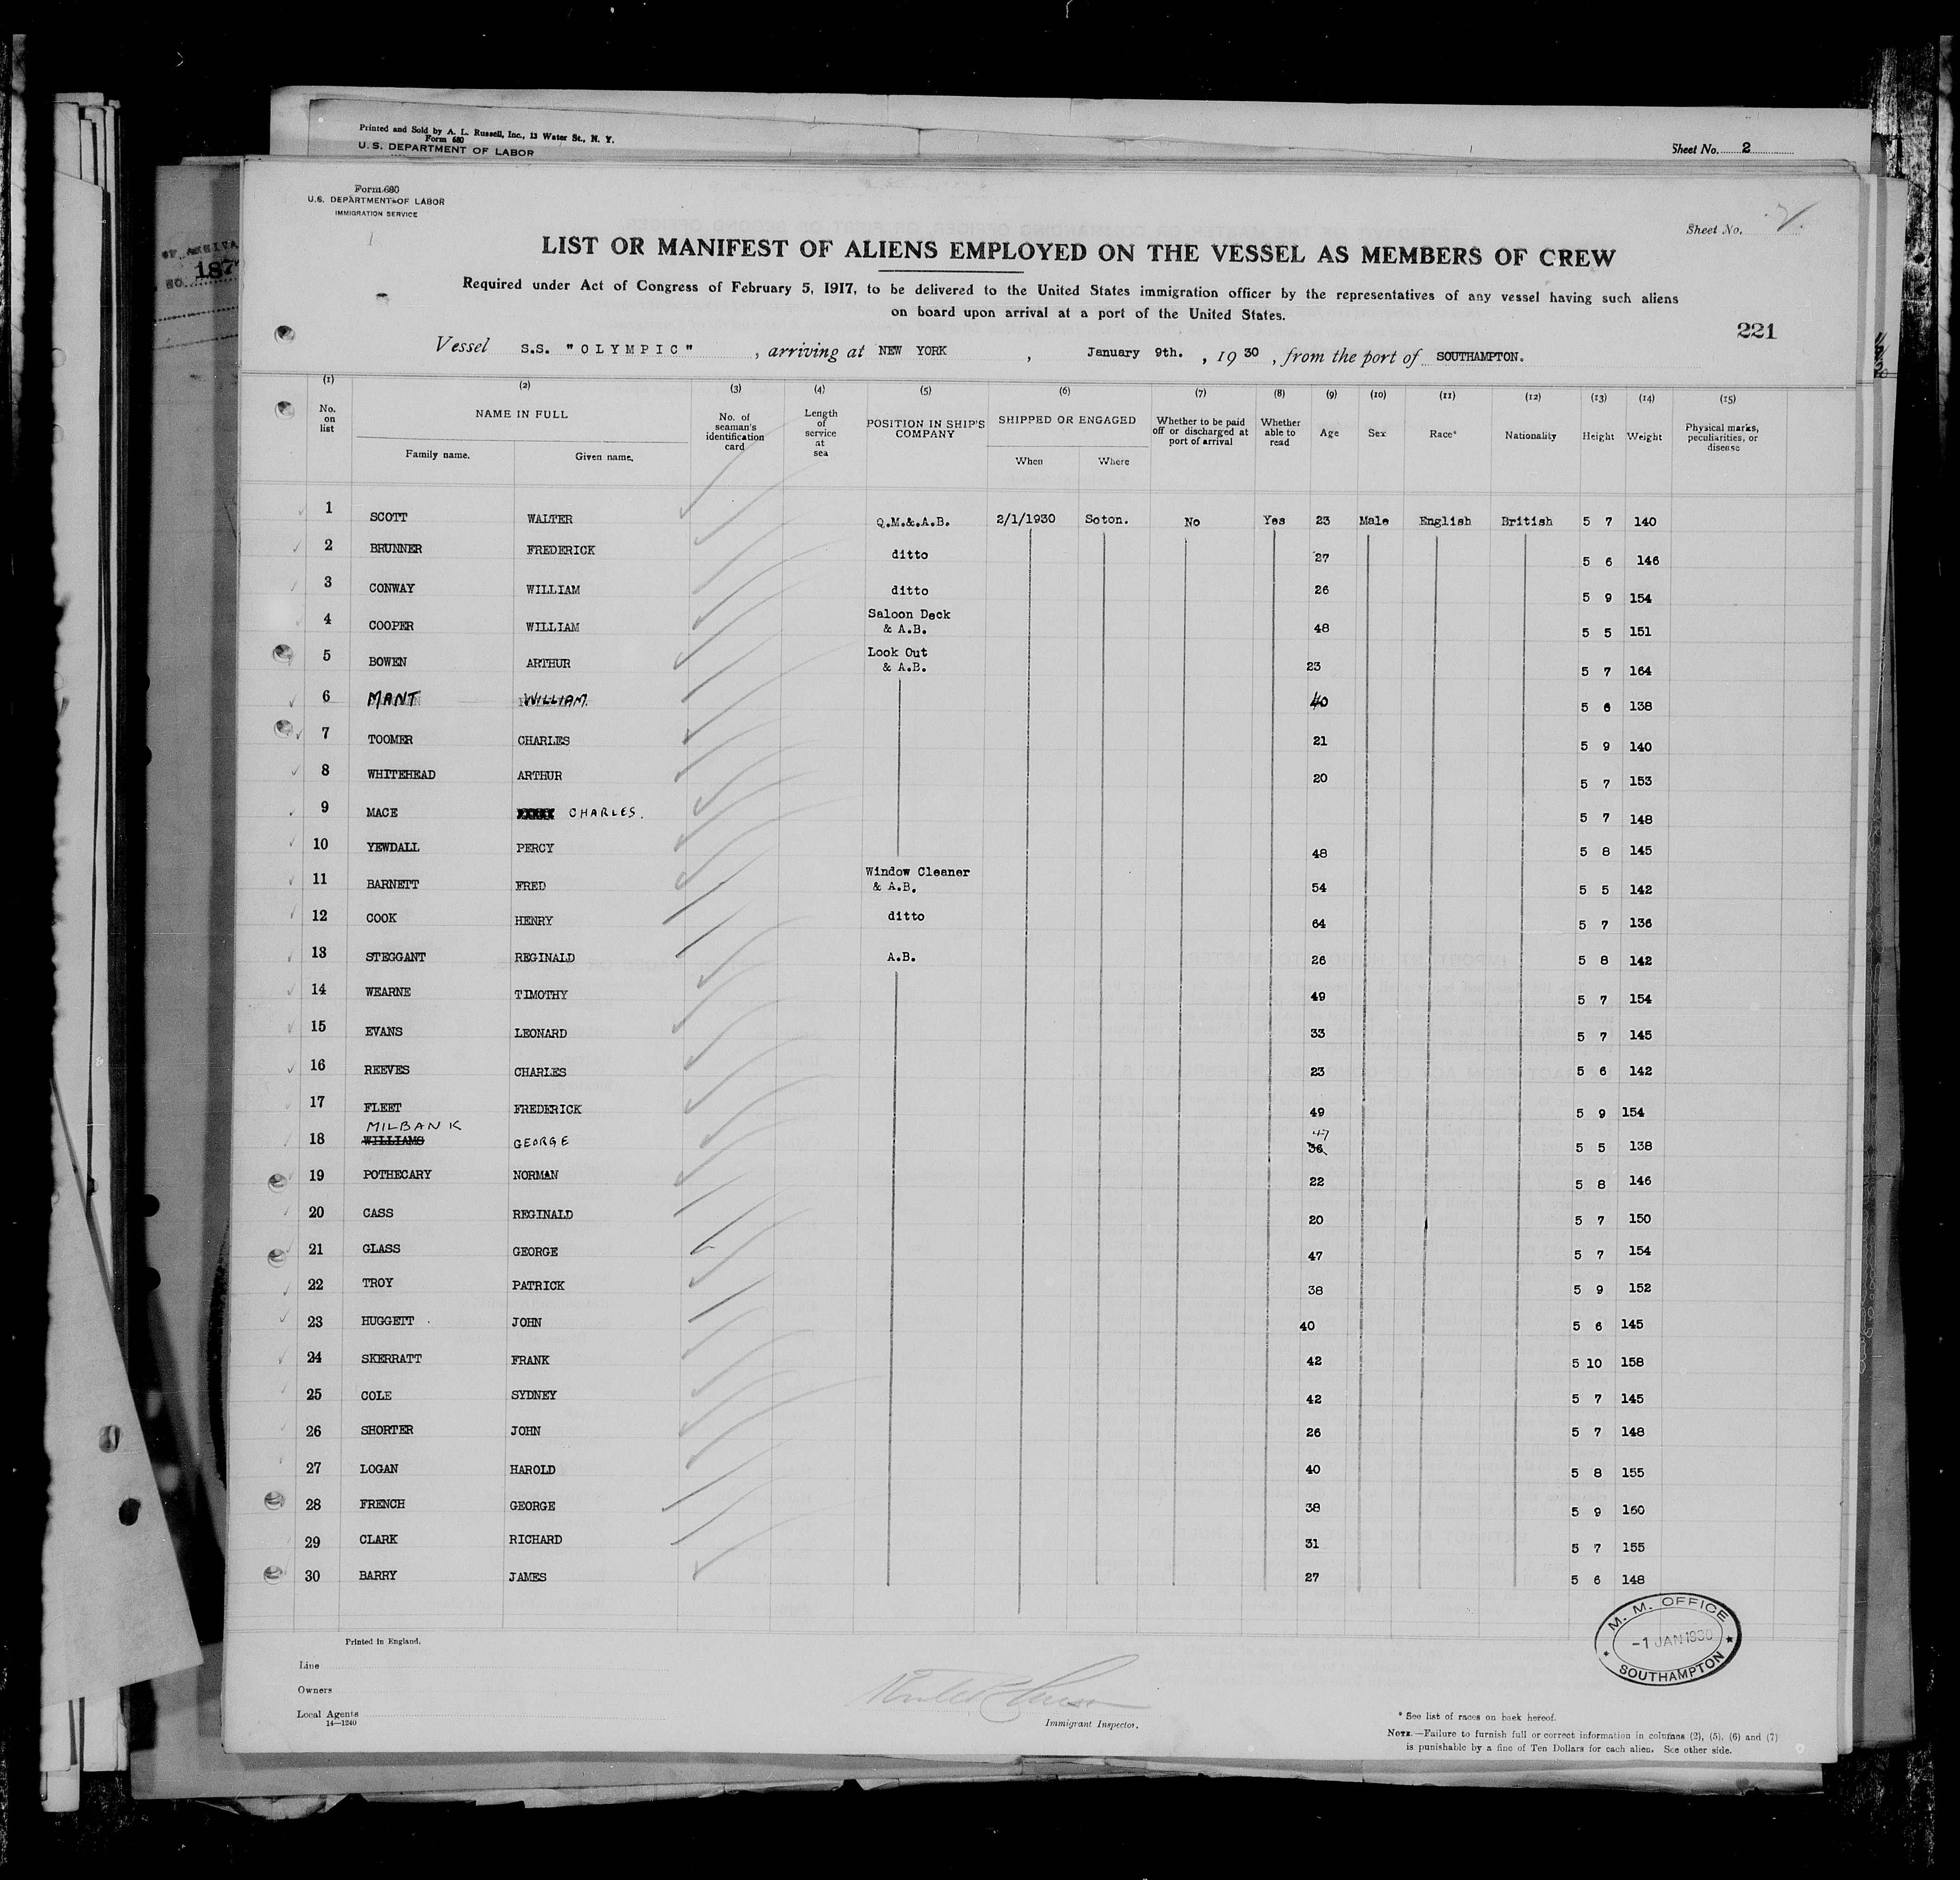 Printed and Sold by A. L. Russell, Inc., 13 Water St., N. Y.
Form 680
U. S. DEPARTMENT OF LABOR
Sheet No. 2
NO. 187
Form 680
U.S. DEPARTMENT OF LABOR
IMMIGRATION SERVICE
Sheet No.
LIST OR MANIFEST OF ALIENS EMPLOYED ON THE VESSEL AS MEMBERS OF CREW
Required under Act of Congress of February 5, 1917, to be delivered to the United States immigration officer by the representatives of any vessel having such aliens
on board upon arrival at a port of the United States.
221
Vessel S.S. "OLYMPIC", arriving at NEW YORK, January 9th., 1930, from the port of SOUTHAMPTON.
(1) (2) (3) (4) (5) (6) (7) (8) (9) (10) (11) (12) (13) (14) (15)
No. on list NAME IN FULL No. of seaman's identification card Length of service at sea POSITION IN SHIP'S COMPANY SHIPPED OR ENGAGED Whether to be paid off or discharged at port of arrival Whether able to read Age Sex Race* Nationality Height Weight Physical marks, peculiarities, or disease
Family name. Given name. When Where
1 SCOTT WALTER Q.M.&.A.B. 2/1/1930 Soton. No Yes 23 Male English British 5 7 140
2 BRUNNER FREDERICK ditto 27 5 6 146
3 CONWAY WILLIAM ditto 26 5 9 154
4 COOPER WILLIAM Saloon Deck & A.B. 48 5 5 151
5 BOWEN ARTHUR Look Out & A.B. 23 5 7 164
6 MANT WILLIAM. 40 5 6 138
7 TOOMER CHARLES 21 5 9 140
8 WHITEHEAD ARTHUR 20 5 7 153
9 MACE CHARLES. 5 7 148
10 YEWDALL PERCY 48 5 8 145
11 BARNETT FRED Window Cleaner & A.B. 54 5 5 142
12 COOK HENRY ditto 64 5 7 136
13 STEGGANT REGINALD A.B. 26 5 8 142
14 WEARNE TIMOTHY 49 5 7 154
15 EVANS LEONARD 33 5 7 145
16 REEVES CHARLES 23 5 6 142
17 FLEET FREDERICK 49 5 9 154
MILBANK 47
18 WILLIAMS GEORGE 36 5 5 138
19 POTHECARY NORMAN 22 5 8 146
20 CASS REGINALD 20 5 7 150
21 GLASS GEORGE 47 5 7 154
22 TROY PATRICK 38 5 9 152
23 HUGGETT JOHN 40 5 6 145
24 SKERRATT FRANK 42 5 10 158
25 COLE SYDNEY 42 5 7 145
26 SHORTER JOHN 26 5 7 148
27 LOGAN HAROLD 40 5 8 155
28 FRENCH GEORGE 38 5 9 160
29 CLARK RICHARD 31 5 7 155
30 BARRY JAMES 27 5 6 148
M. M. OFFICE
-1 JAN 1930
SOUTHAMPTON
Printed in England.
Line
Owners
Local Agents
14—1240
Immigrant Inspector.
* See list of races on back hereof.
NOTE.—Failure to furnish full or correct information in columns (2), (5), (6) and (7)
is punishable by a fine of Ten Dollars for each alien. See other side.